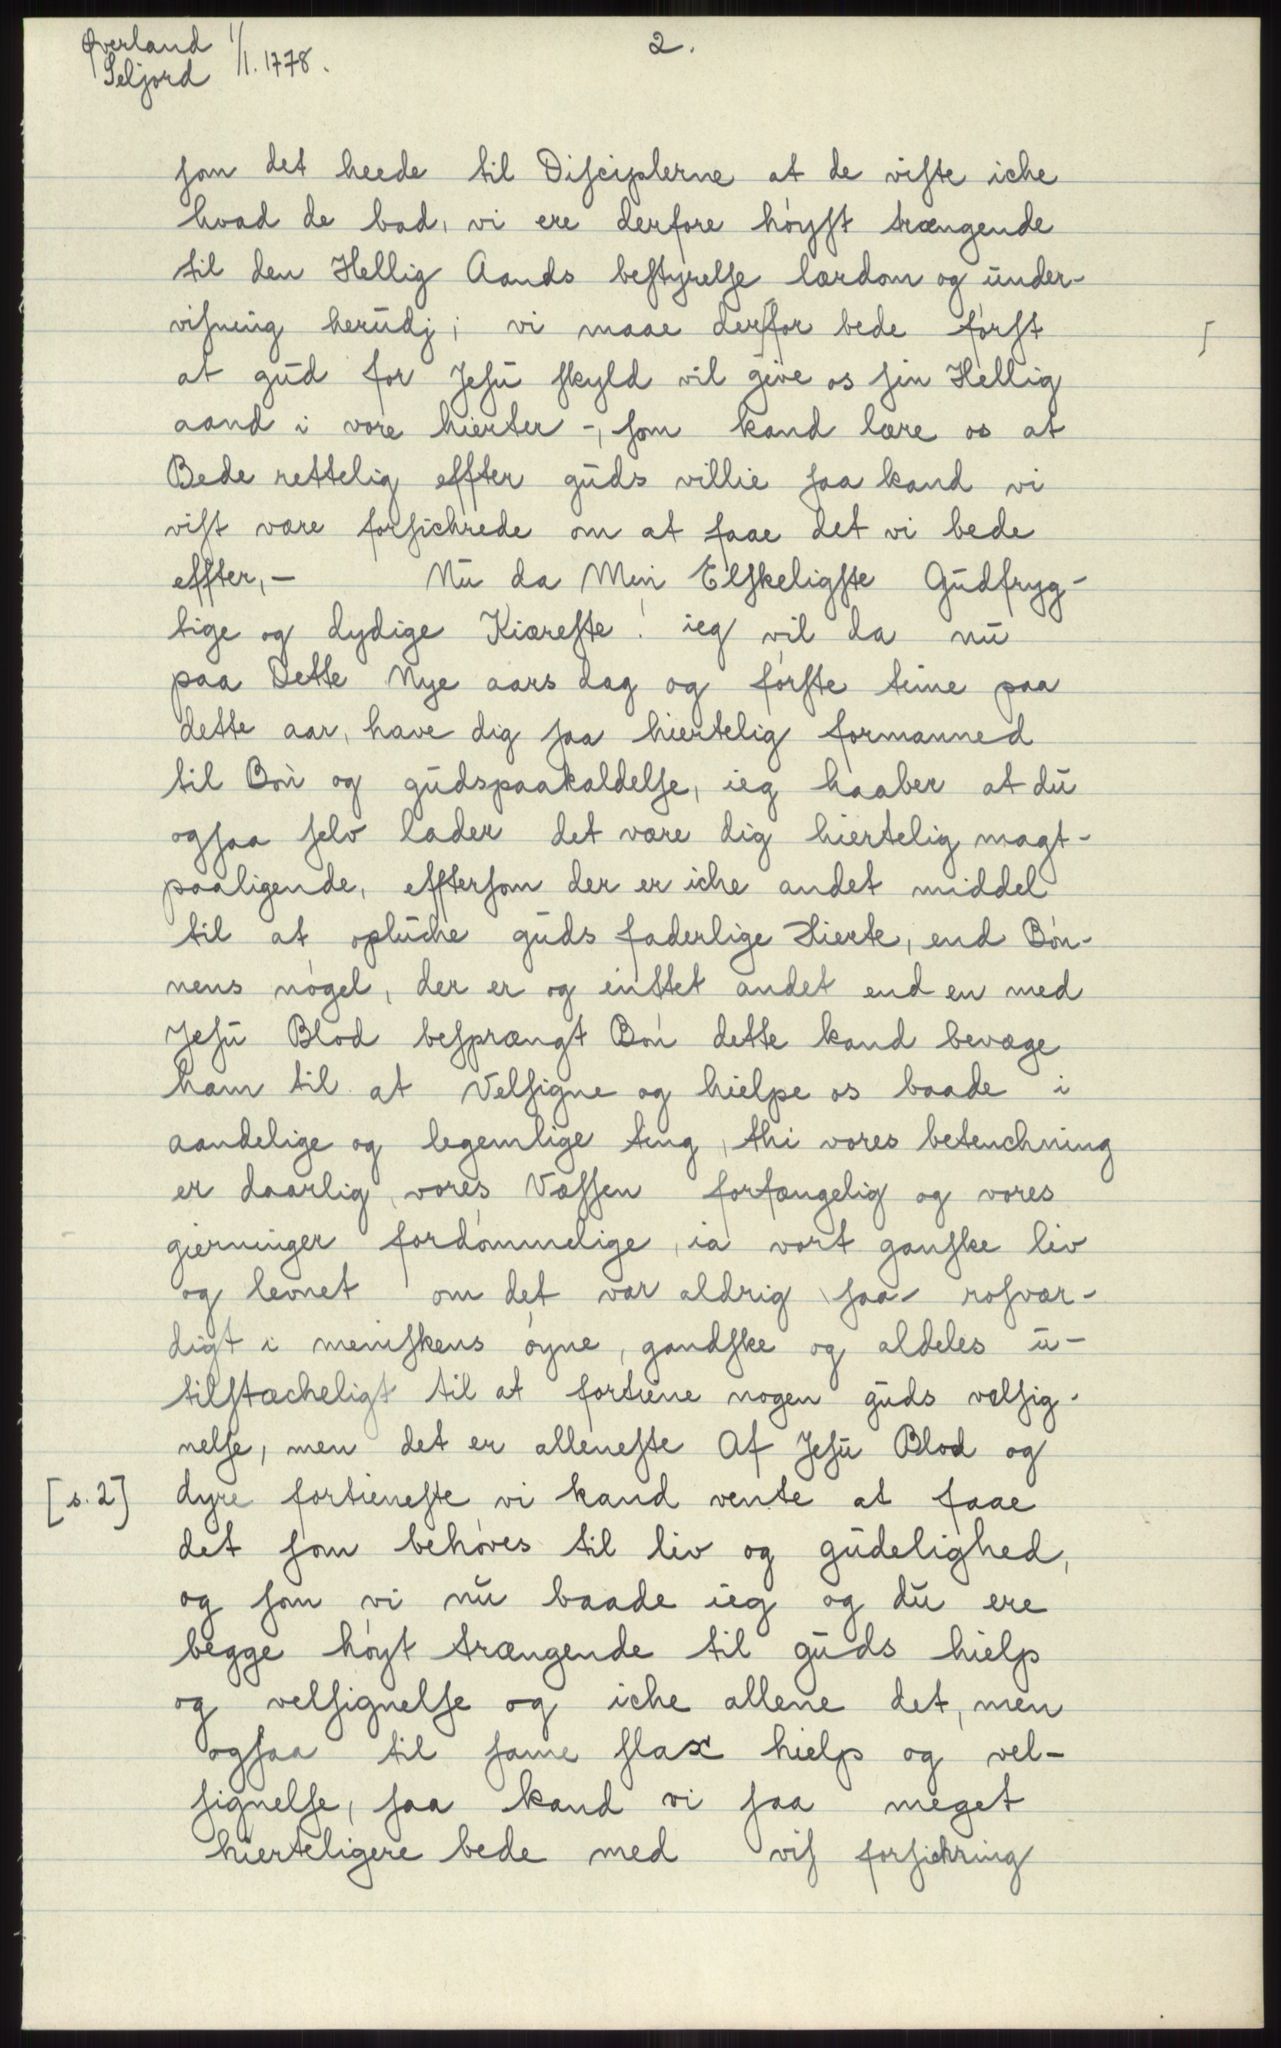 Øverland 1/1. 1778.
Seljord
2.
som det heede til Disciplerne at de viste iche
hvad de bad, vi ere derfore høyst trængende
til den Hellig Aands bestyrelse lærdom og under-
visning herudj; vi maae derfor bede først
at gud for Jesu skyld vil give os sin Hellig
aand i vore hierter -, som kand lære os at
Bede rettelig effter guds villie saa kand vi
vist være forsichrede om at faae det vi bede
effter, - Nu da Min Elskeligste Gudfryg-
tige og dydige Kiæreste! ieg vil da nu
paa Dette Nye aars dag og første time paa
dette aar, have dig saa hiertelig formanned
til Bøn og gudspaakaldelse, ieg haaber at du
ogsaa selv lader det være dig hiertelig magt-
paaligende, efftersom der er iche andet middel
til at opluche guds faderlige Hierte, end Bøn-
nens nøgel, der er og intet andet end en med
Jesu Blod besprængt Bøn dette kand bevæge
ham til at Velsigne og hielpe os baade i
aandelige og legemlige ting, thi vores betenchning
er daarlig, vores Væssen forfængelig og vores
gierninger fordømmelige, ia vort ganske liv
og levnet om det var aldrig saa rosvær-
digt i meniskens øyne, gandske og aldeles u-
tilstæcheligt til at fortiene nogen guds velsig-
nelse, men det er alleneste Af Jesu Blod og
[s. 2] dyre fortieneste vi kand vente at faae
det som behøves til liv og gudelighed,
og som vi nu baade ieg og du ere
begge høyt trængende til guds hielp
og velsignelse og iche allene det, men
ogsaa til same slax hielp og vel-
signelse, saa kand vi saa meget
hierteligere bede med vis forsichring